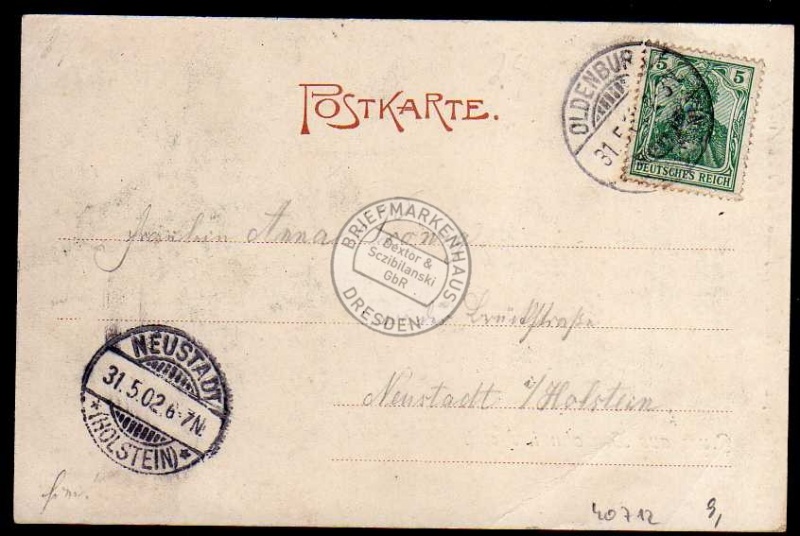 POSTKARTE.
OLDENBUR
31.5
5 5
DEUTSCHES REICH
Fräulein Anna
BRIEFMARKENHAUS
Dextor &
Sczibilanski
GbR
DRESDEN
Brückstraße
NEUSTADT
31.5.02.6-7N.
*(HOLSTEIN)*
Neustadt i/Holstein.
40712 9,